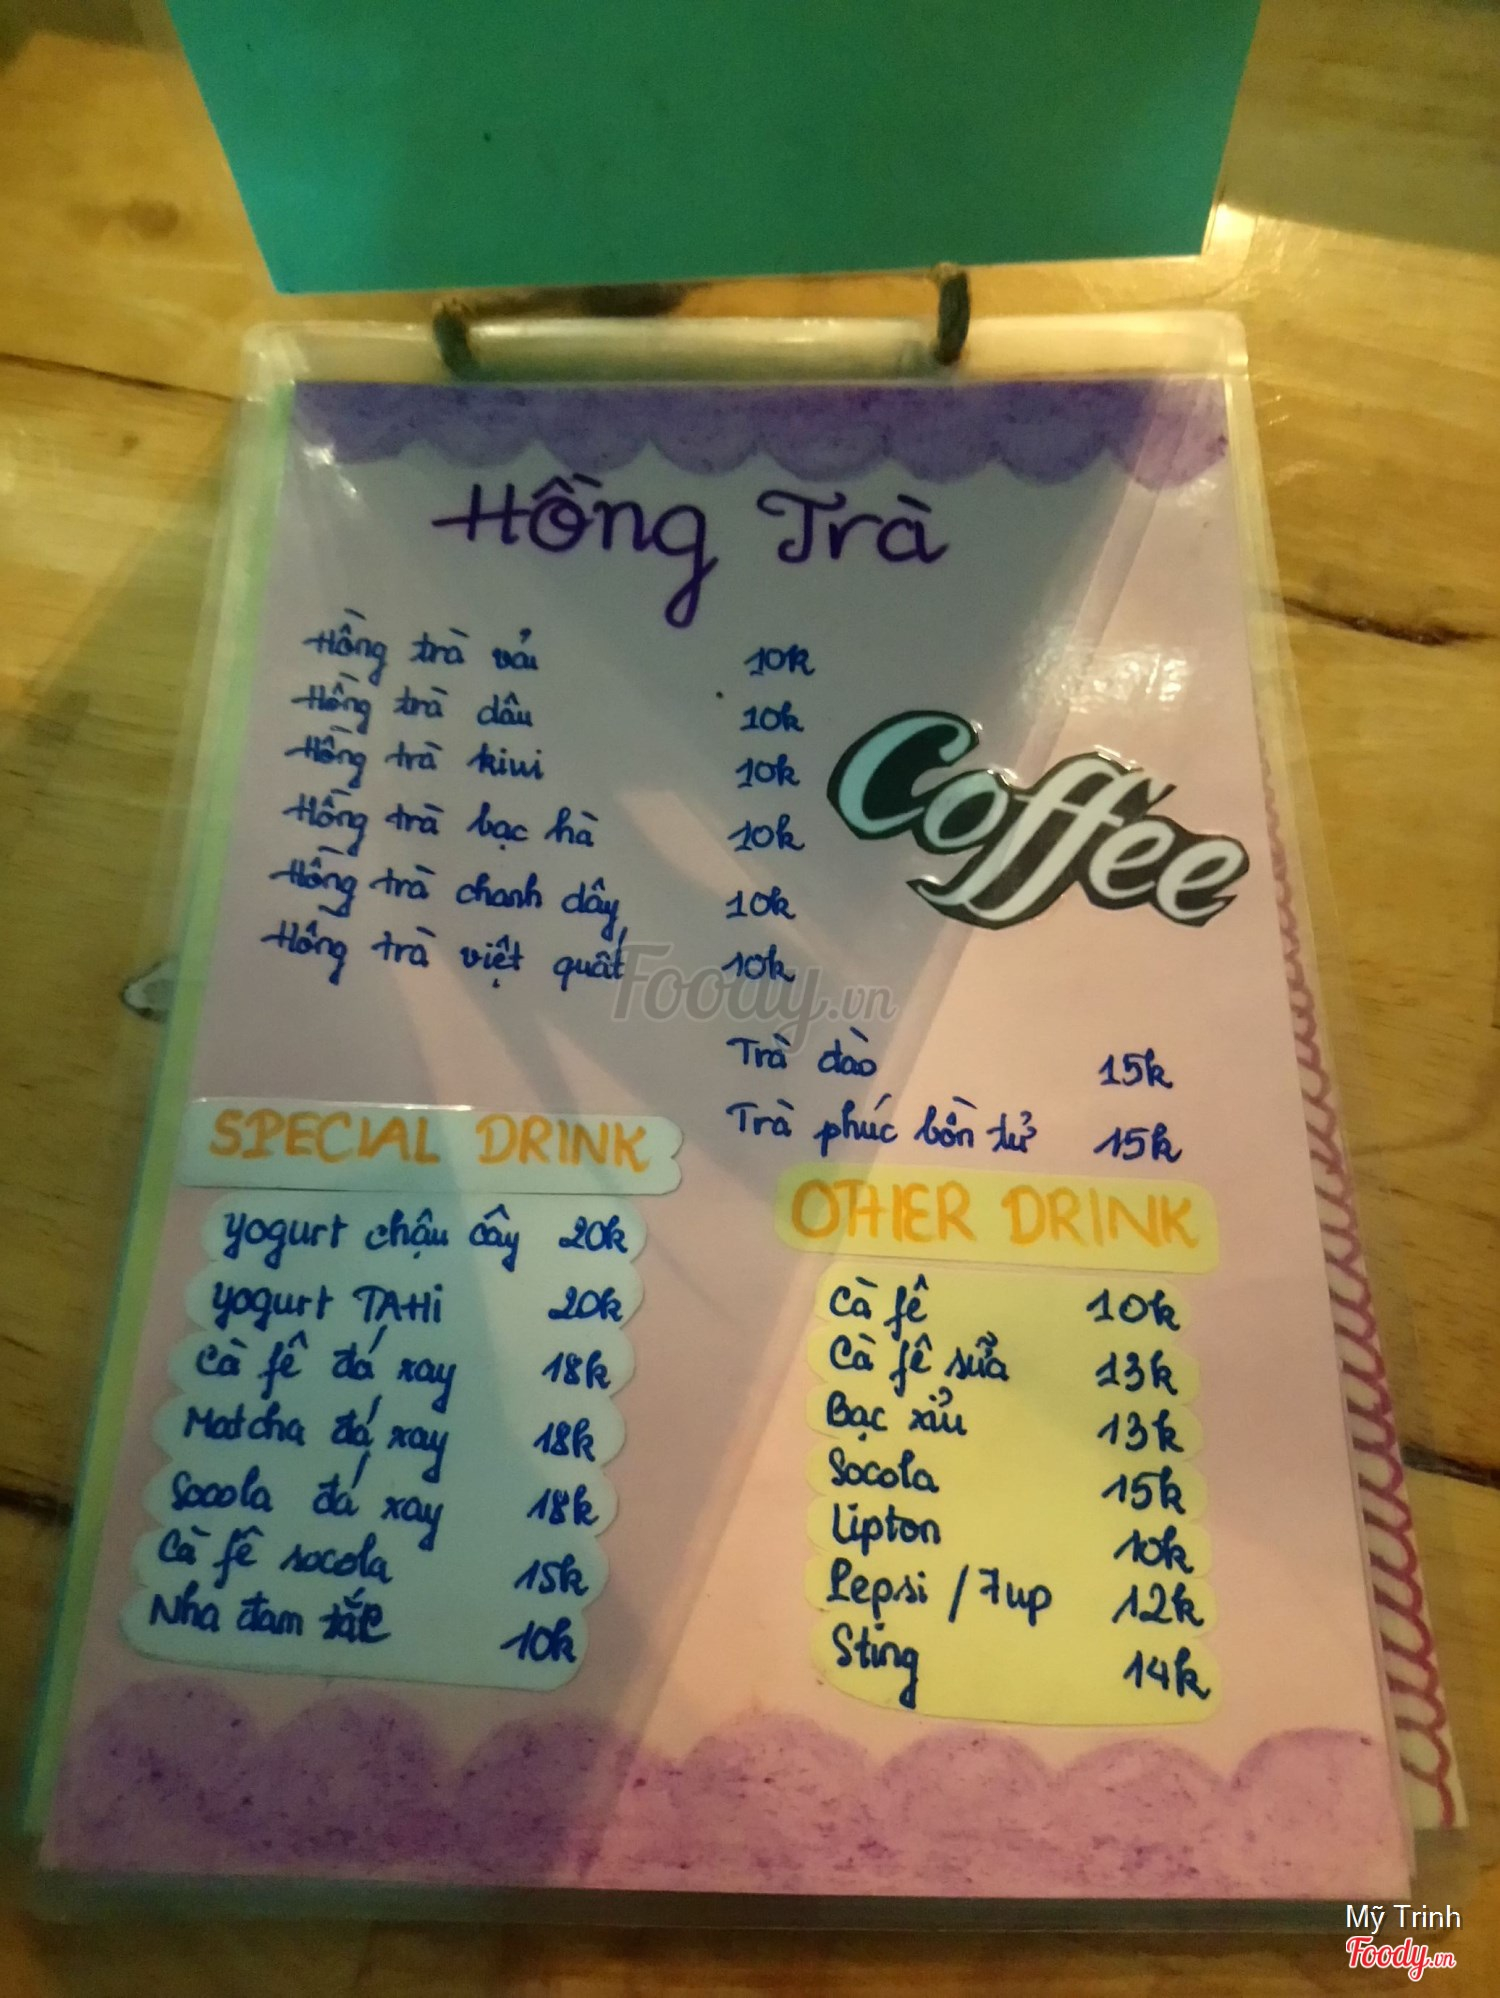 Hồng Trà
Hồng trà vải 10k
Hồng trà dâu 10k
Hồng trà kiwi 10k
Hồng trà bạc hà 10k
Hồng trà chanh dây 10k
Hồng trà việt quất 10k
Coffee
Foody.vn
Trà đào 15k
Trà phúc bồn tử 15k
SPECIAL DRINK
Yogurt chậu cây 20k
Yogurt TAHi 20k
Cà fê đá xay 18k
Matcha đá xay 18k
Socola đá xay 18k
Cà fê socola 15k
Nha đam tắc 10k
OTHER DRINK
Cà fê 10k
Cà fê sữa 13k
Bạc xỉu 13k
Socola 15k
Lipton 10k
Pepsi / 7up 12k
Sting 14k
Mỹ Trinh
Foody.vn